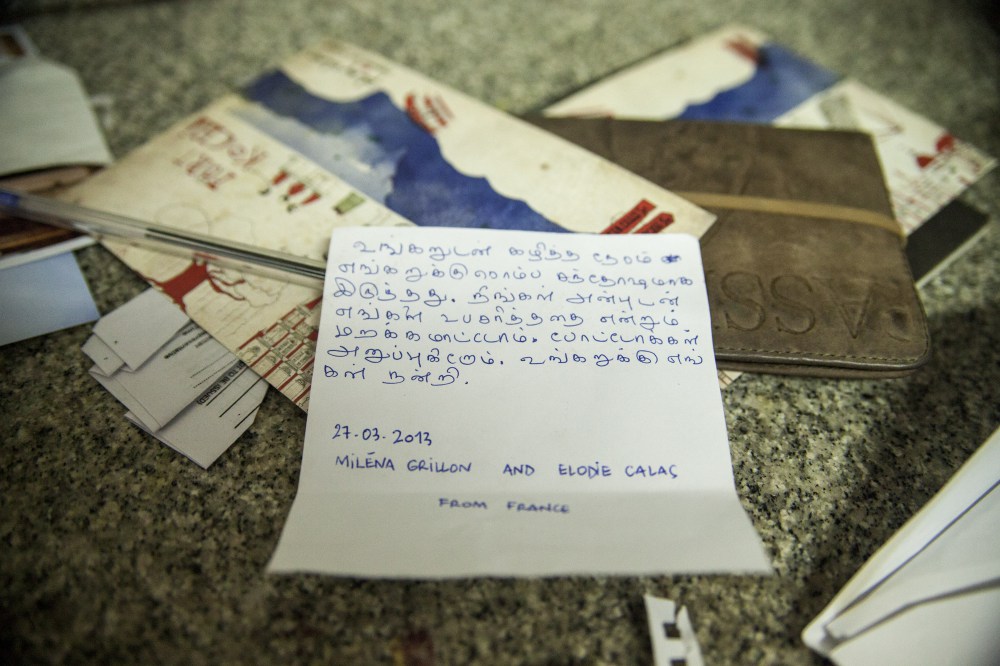 உங்கறுடன் கழித்த நேரம்
எங்கறுக்கு ரொம்ப சந்தோஷமாக
இருந்தது. நிங்கள் அன்புடன்
எங்களை உபசரித்ததை என்றும்
மறக்கமாட்டோம். போட்டோக்கள்
அனுப்புகிறோம். உங்கறுக்கு எங்
கள் நன்றி.
27-03-2013
MILÉNA GRILLON AND ELODIE CALAS
FROM FRANCE